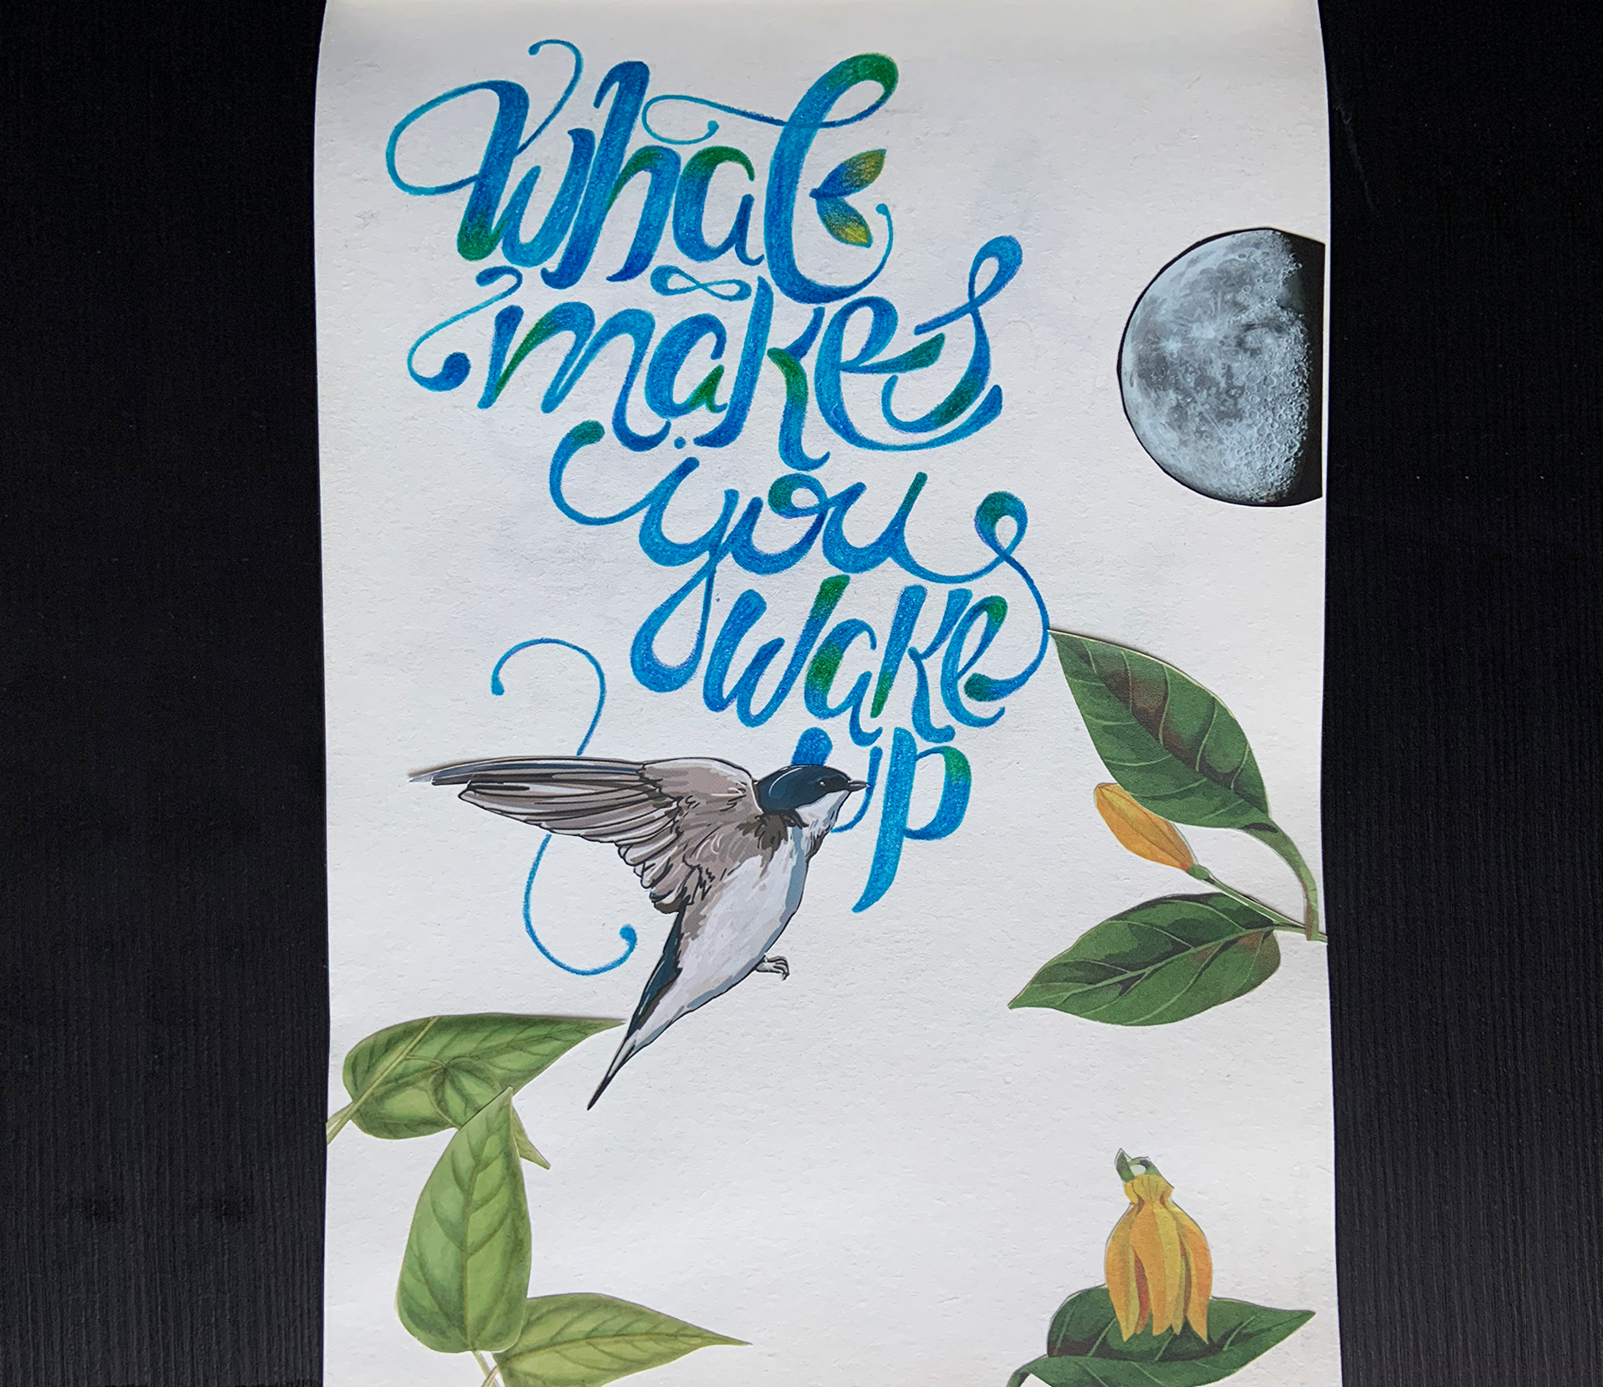 What
makes
you
wake
up